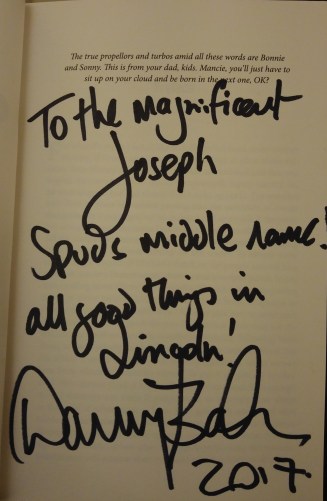 The true propellors and turbos amid all these words are Bonnie
and Sonny. This is from your dad, kids. Mancie, you'll just have to
sit up on your cloud and be born in the next one, OK?
To the magnificent
Joseph
Spuds middle name!
all good things in
Lincoln!
Danny Baker
2017